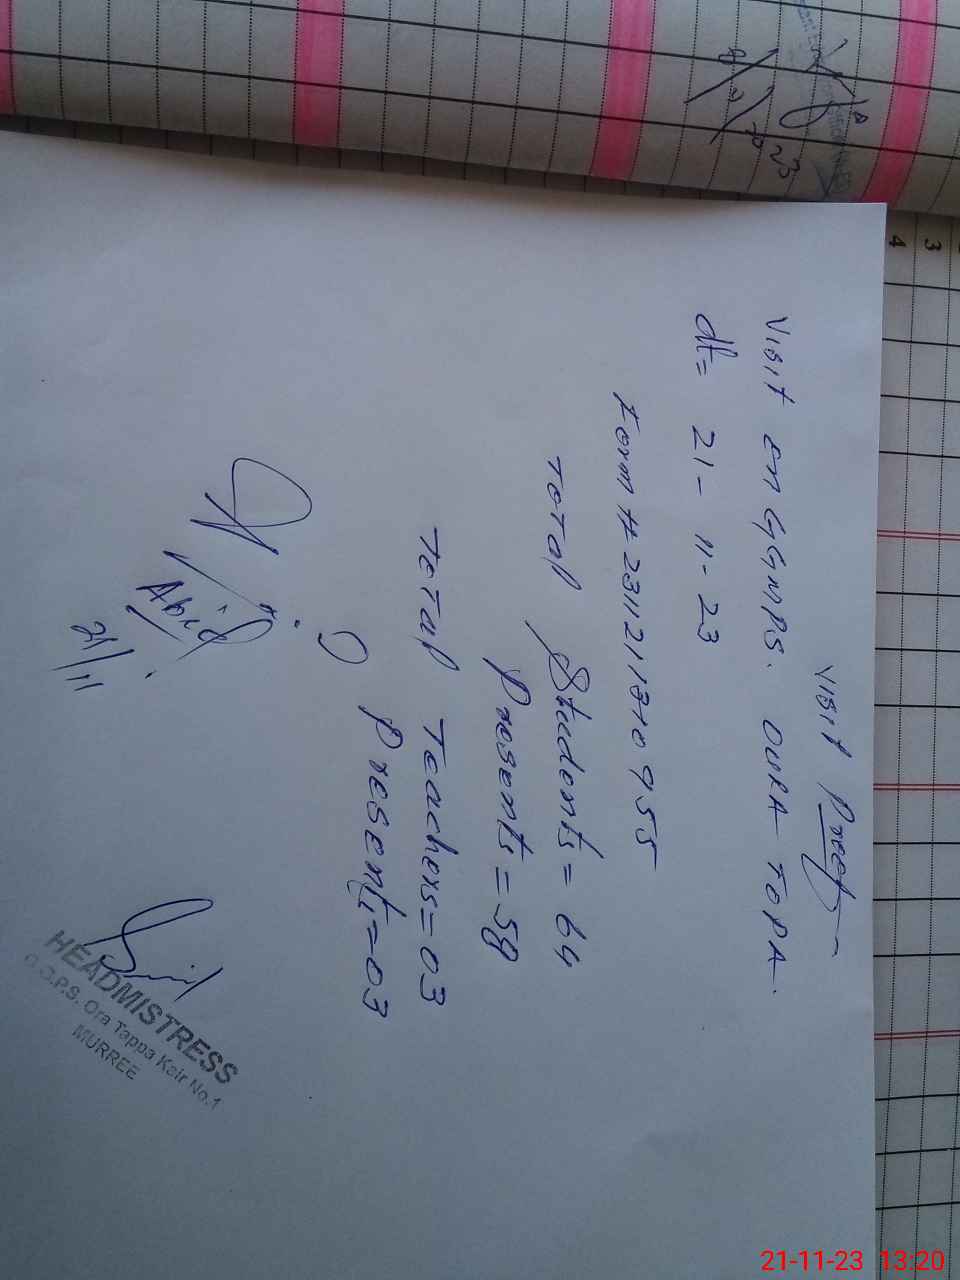 Visit Proof
Visit on GGMPS. OURA TOPA.
dt= 21-11-23
Form # 2311211310955
Total Students = 64
Presents = 58
Total Teachers = 03
Presents = 03
Abid
21/11
HEADMISTRESS
G.G.P.S. Ora Tappa Kair No.1
MURREE
3
4
2023
21-11-23 13:20